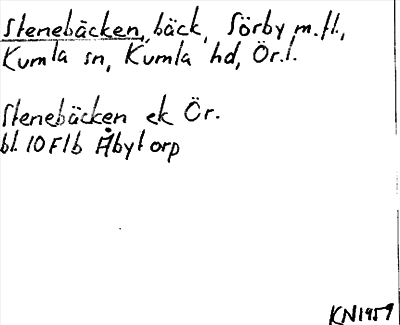 Stenebäcken, bäck, Sörby m.fl.,
Kumla sn, Kumla hd, Ör.l.
Stenebäcken ek Ör.
bl. 10F1b Åbytorp
KN1959